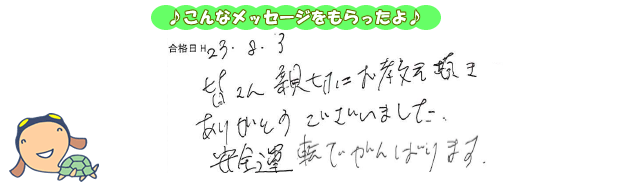 ♪こんなメッセージをもらったよ♪
合格日H23.8.3
皆さん親切にお教え頂き
ありがとうございました。
安全運転でがんばります.